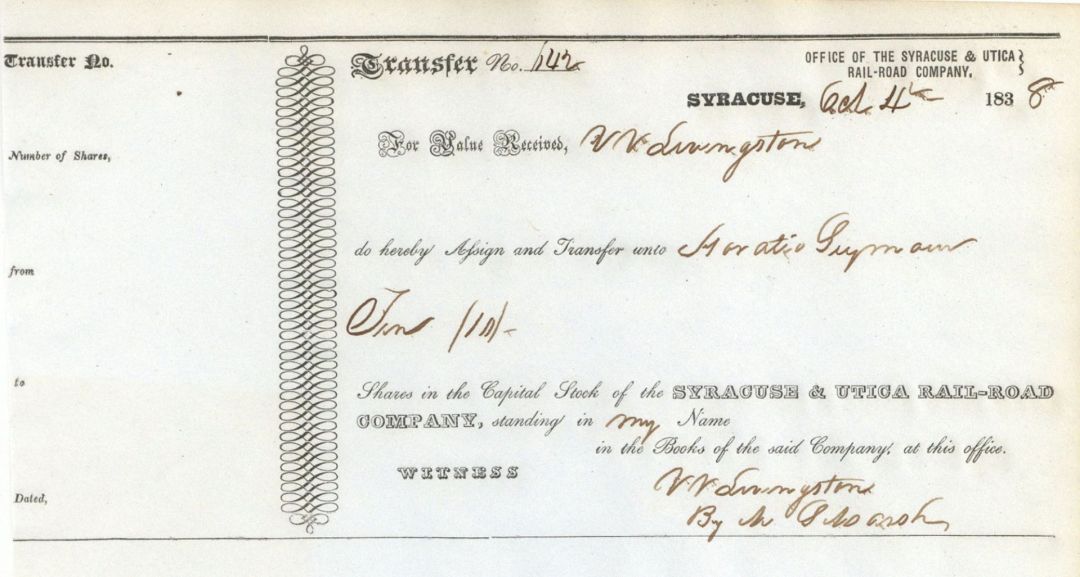 Transfer No.
Number of Shares,
from
to
Dated,
Transfer No. 142
OFFICE OF THE SYRACUSE & UTICA
RAIL-ROAD COMPANY,
SYRACUSE, Oct 4th 1838
For Value Received, V V Livingston
do hereby Assign and Transfer unto Horatio Seymour
Ten (10)-
Shares in the Capital Stock of the SYRACUSE & UTICA RAIL-ROAD
COMPANY, standing in my Name
in the Books of the said Company, at this office.
WITNESS
V V Livingston
By